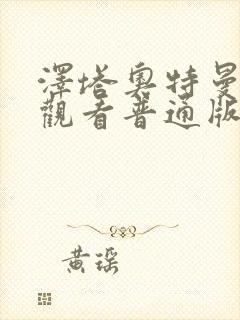 澤塔奧特曼
觀看普通版
黃琛